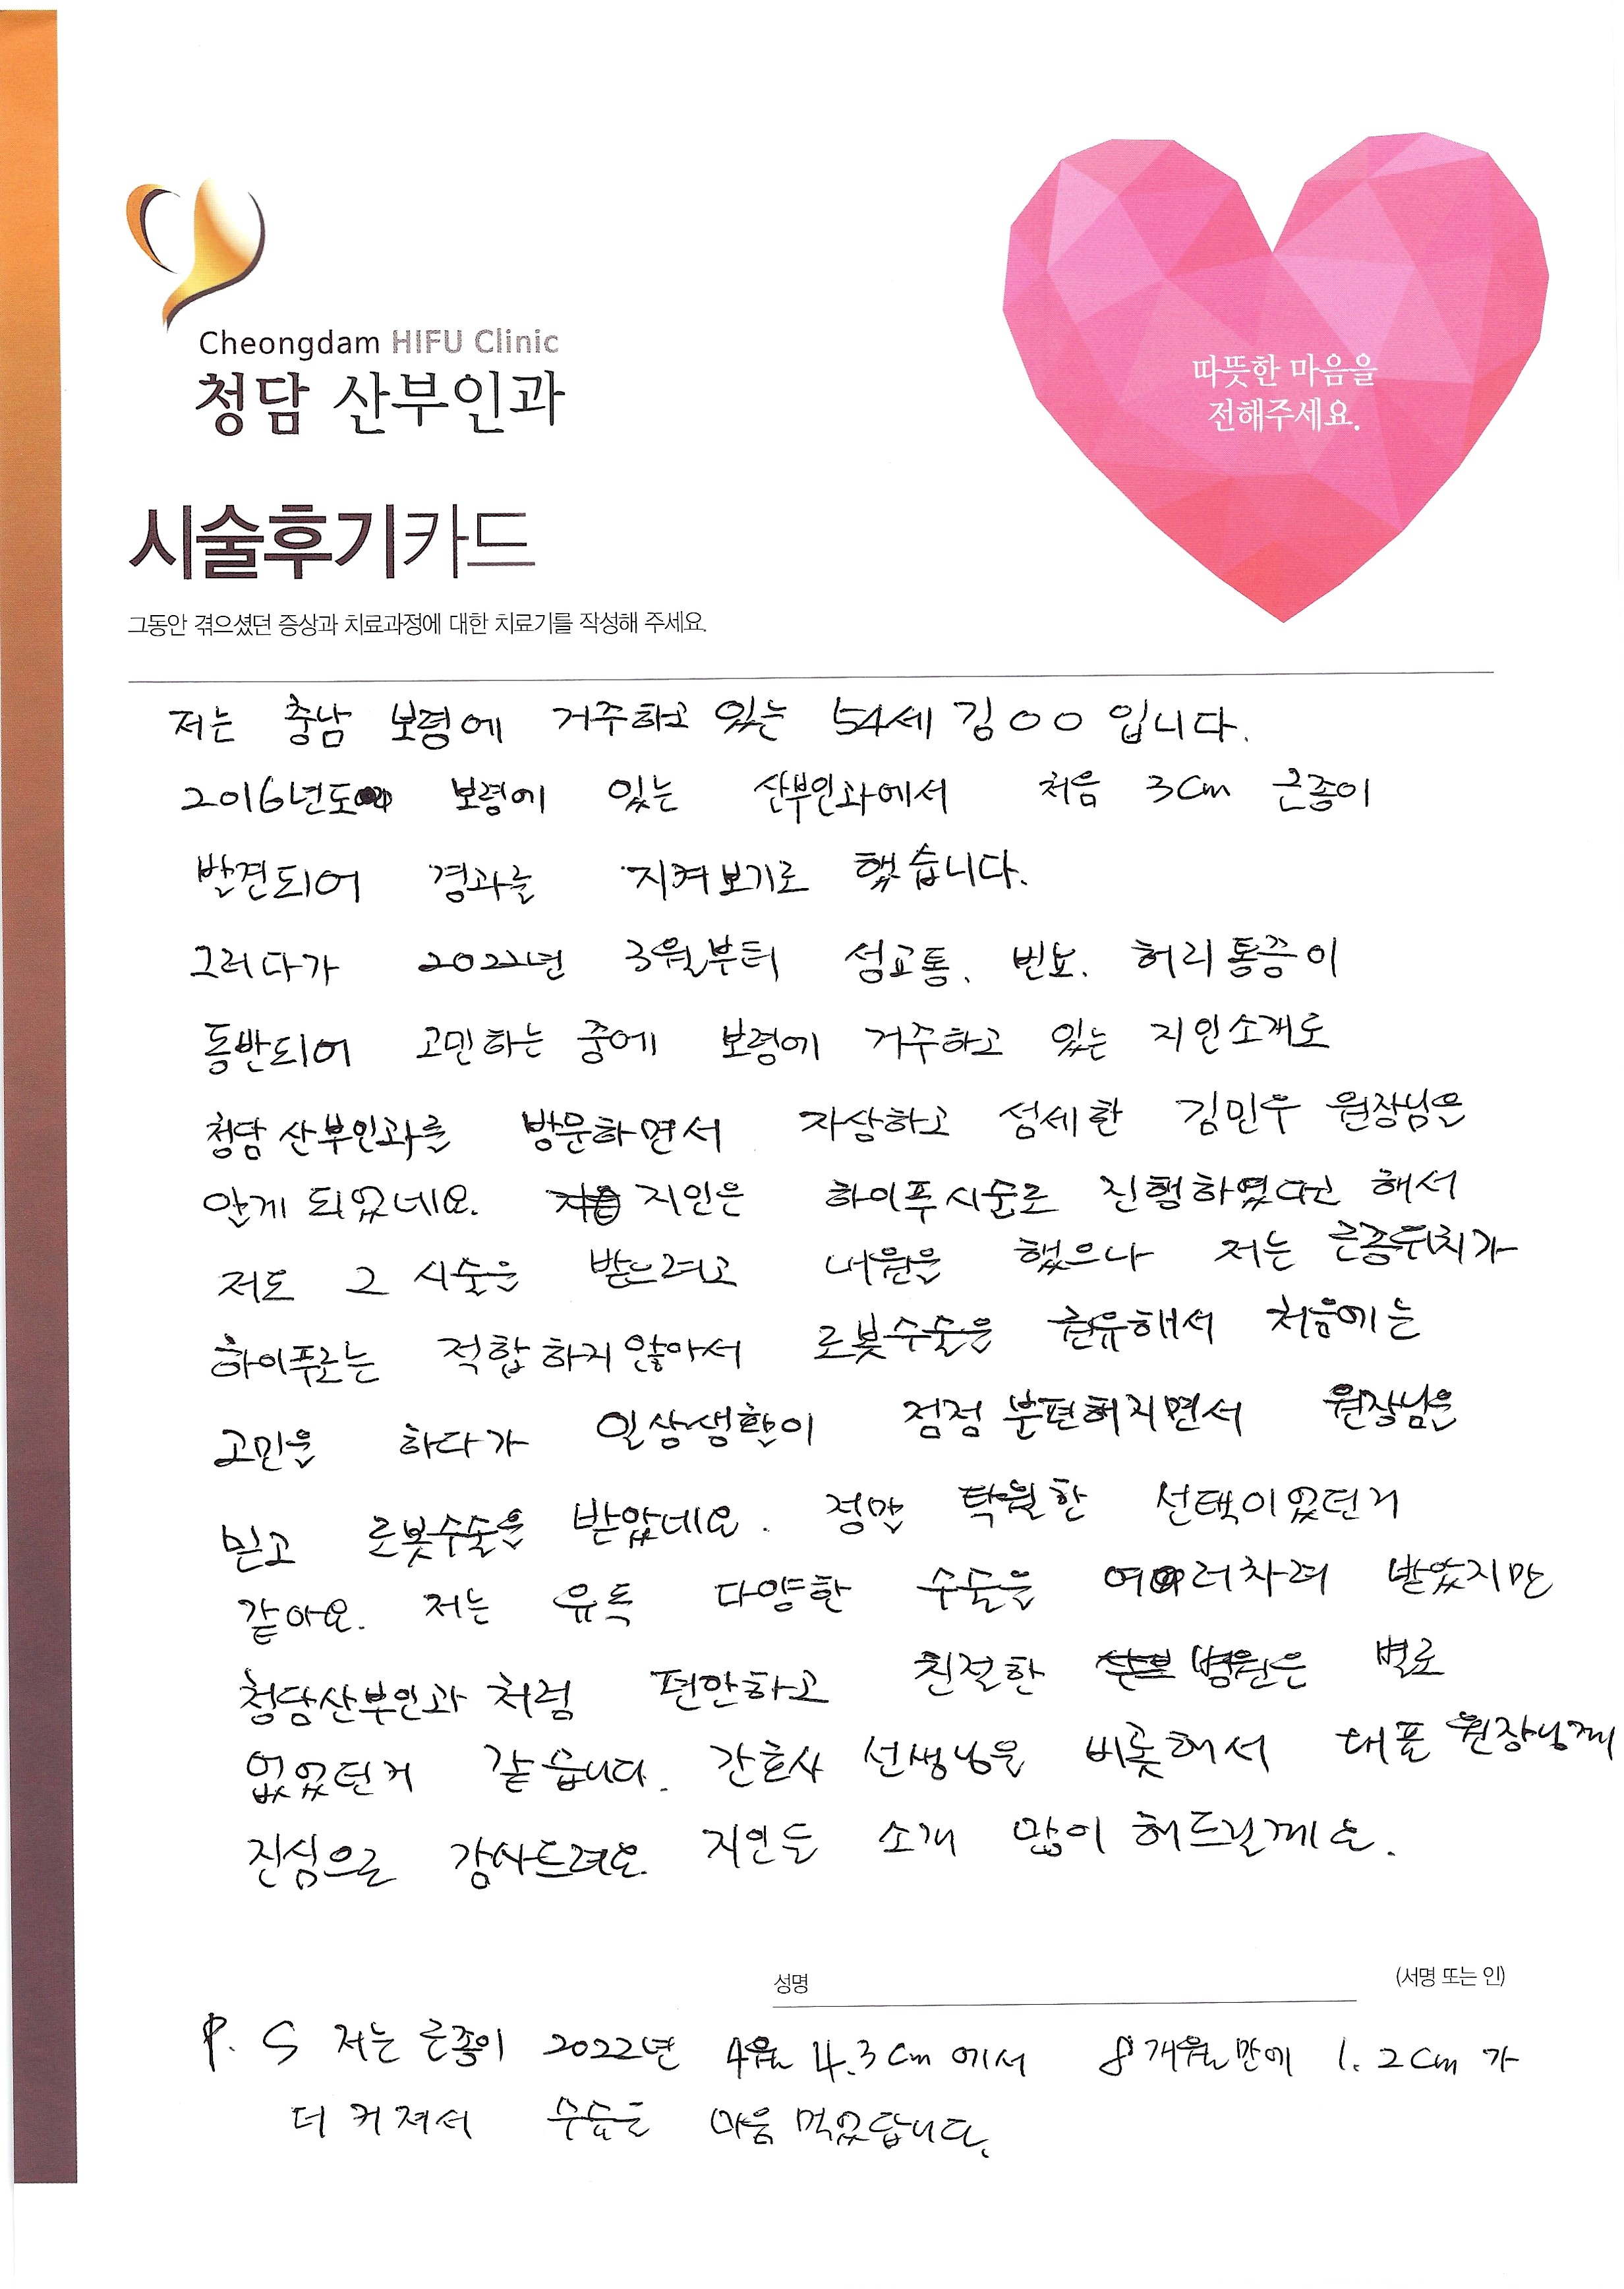 Cheongdam HIFU Clinic
청담 산부인과
따뜻한 마음을
전해주세요.
시술후기카드
그동안 겪으셨던 증상과 치료과정에 대한 치료기를 작성해 주세요.
저는 충남 보령에 거주하고 있는 54세 김○○ 입니다.
2016년도 보령에 있는 산부인과에서 처음 3cm 근종이
발견되어 경과를 지켜보기로 했습니다.
그러다가 2022년 3월부터 성교통, 빈뇨, 허리통증이
동반되어 고민하는 중에 보령에 거주하고 있는 지인소개로
청담산부인과를 방문하면서 자상하고 섬세한 김민우 원장님을
알게 되었네요. 지인은 하이푸시술로 진행하였다고 해서
저도 그 시술을 받으려고 내원을 했으나 저는 근종위치가
하이푸로는 적합하지않아서 로봇수술을 권유해서 처음에는
고민을 하다가 일상생활이 점점 불편해지면서 원장님을
믿고 로봇수술을 받았네요. 정말 탁월한 선택이었던거
같아요. 저는 유독 다양한 수술을 여러차례 받았지만
청담산부인과 처럼 편안하고 친절한 병원은 별로
없었던거 같습니다. 간호사 선생님을 비롯해서 대표 원장님께
진심으로 감사드려요 지인들 소개 많이 해드릴께요.
성명 (서명 또는 인)
P. S 저는 근종이 2022년 4월 4.3cm 에서 8개월만에 1.2cm 가
더 커져서 수술을 마음 먹었답니다.